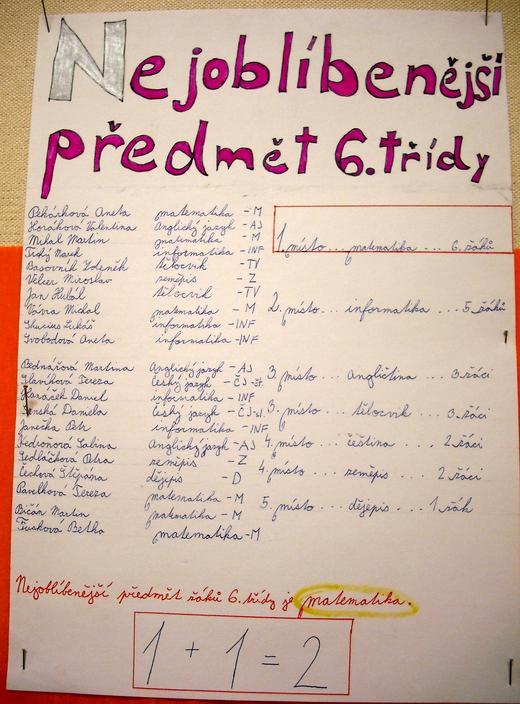 Nejoblíbenější
předmět 6. třídy
Pekárková Aneta matematika - M
Horáková Valentina Anglický jazyk - AJ
Milak Martin matematika - M
Tichý Marek informatika - INF
Basovník Zdeněk tělocvik - TV
Velčer Miroslav zeměpis - Z
Jan Hubál tělocvik - TV
Vávra Michal matematika - M
Lukáš informatika - INF
Svobodová Aneta informatika - INF
Bednářová Martina Anglický jazyk - AJ
Slavíková Tereza český jazyk - ČJ
Haráček Daniel informatika - INF
Daniela český jazyk - ČJ
Janečka Petr informatika - INF
Sabina Anglický jazyk - AJ
Sedláčková Petra zeměpis - Z
Čechová Štěpána dějepis - D
Pavlková Tereza
matematika - M
Bičán Martin matematika - M
Fusková Betka matematika - M
1. místo... matematika ... 6. žáků
2. místo... informatika ... 5. žáků
3. místo ... angličtina ... 3. žáci
3. místo ... tělocvik ... 3. žáci
4. místo ... čeština ... 2 žáci
4. místo ... zeměpis ... 2 žáci
5. místo ... dějepis ... 1 žák
Nejoblíbenější předmět žáků 6. třídy je matematika.
1 + 1 = 2